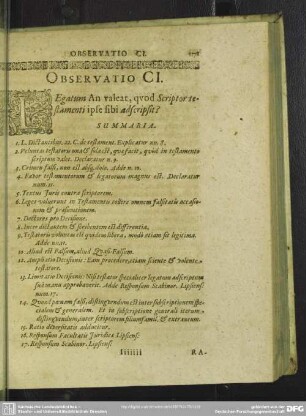 OBSERVATIO CI.
OBSERVATIO CI.
LEgatum An valeat, qvod Scriptor te-
stamenti ipse sibi adscripsit?
SUMMARIA.
1. L. Dictantibus. 22. C. de testament. Explicatur nn. 8.
2. Voluntas testatoris una & sola est, quæ facit, quod in testamento
scriptum valet. Declaratur n. 9.
3. Crimen falsi, non est absq; dolo. Adde n. 10.
4. Favor testamentorum & legatorum magnus est. Declaratur
num. 11.
5. Textus Juris contra scriptorem.
6. Leges voluerunt in Testamentis tollere omnem falsitatis occasio-
nem & præsumtionem.
7. Doctores pro Decisione.
8. Inter dictantem & scribentem est differentia.
9. Testatoris voluntas est quidem libera, modo etiam sit legitima.
Adde n. 11.
10. Aliud est Falsum, aliud Quasi-Falsum.
12. Ampliatio Decisionis: Eam procedere, etiam sciente & volente
testatore.
13. Limitatio Decisionis: Nisi testator specialiter legatum adscriptum
sua manu approbaverit. Adde Responsum Scabinor. Lipsens:
num. 17.
14. Quoad pœnam falsi, distinguendum est inter subscriptionem spe-
cialem & generalem. Et in subscriptione generali iterum
distinguendum, inter scriptorem filiumfamil. & extraneum.
15. Ratio diversitatis additur.
16. Responsum Facultatis Juridicæ Lipsens:
17. Responsum Scabinor. Lipsens:
Iiiiiii
RA-